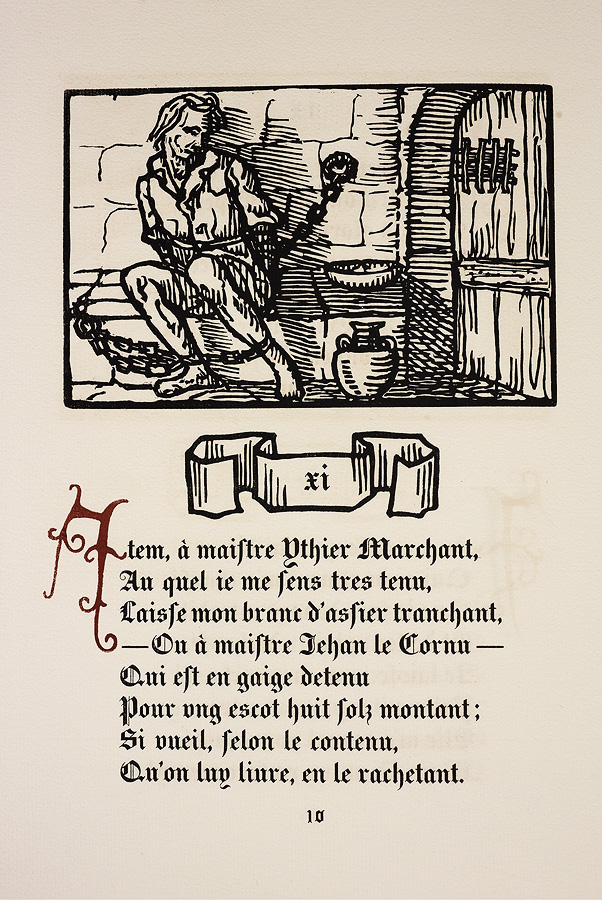 xi
Item, à maiſtre Ythier Marchant,
Au quel ie me ſens tres tenu,
Laiſſe mon branc d'aſſier tranchant,
— Ou à maiſtre Jehan le Cornu —
Qui eſt en gaige detenu
Pour vng escot huit ſolz montant;
Si vueil, ſelon le contenu,
Qu'on luy liure, en le rachetant.
10